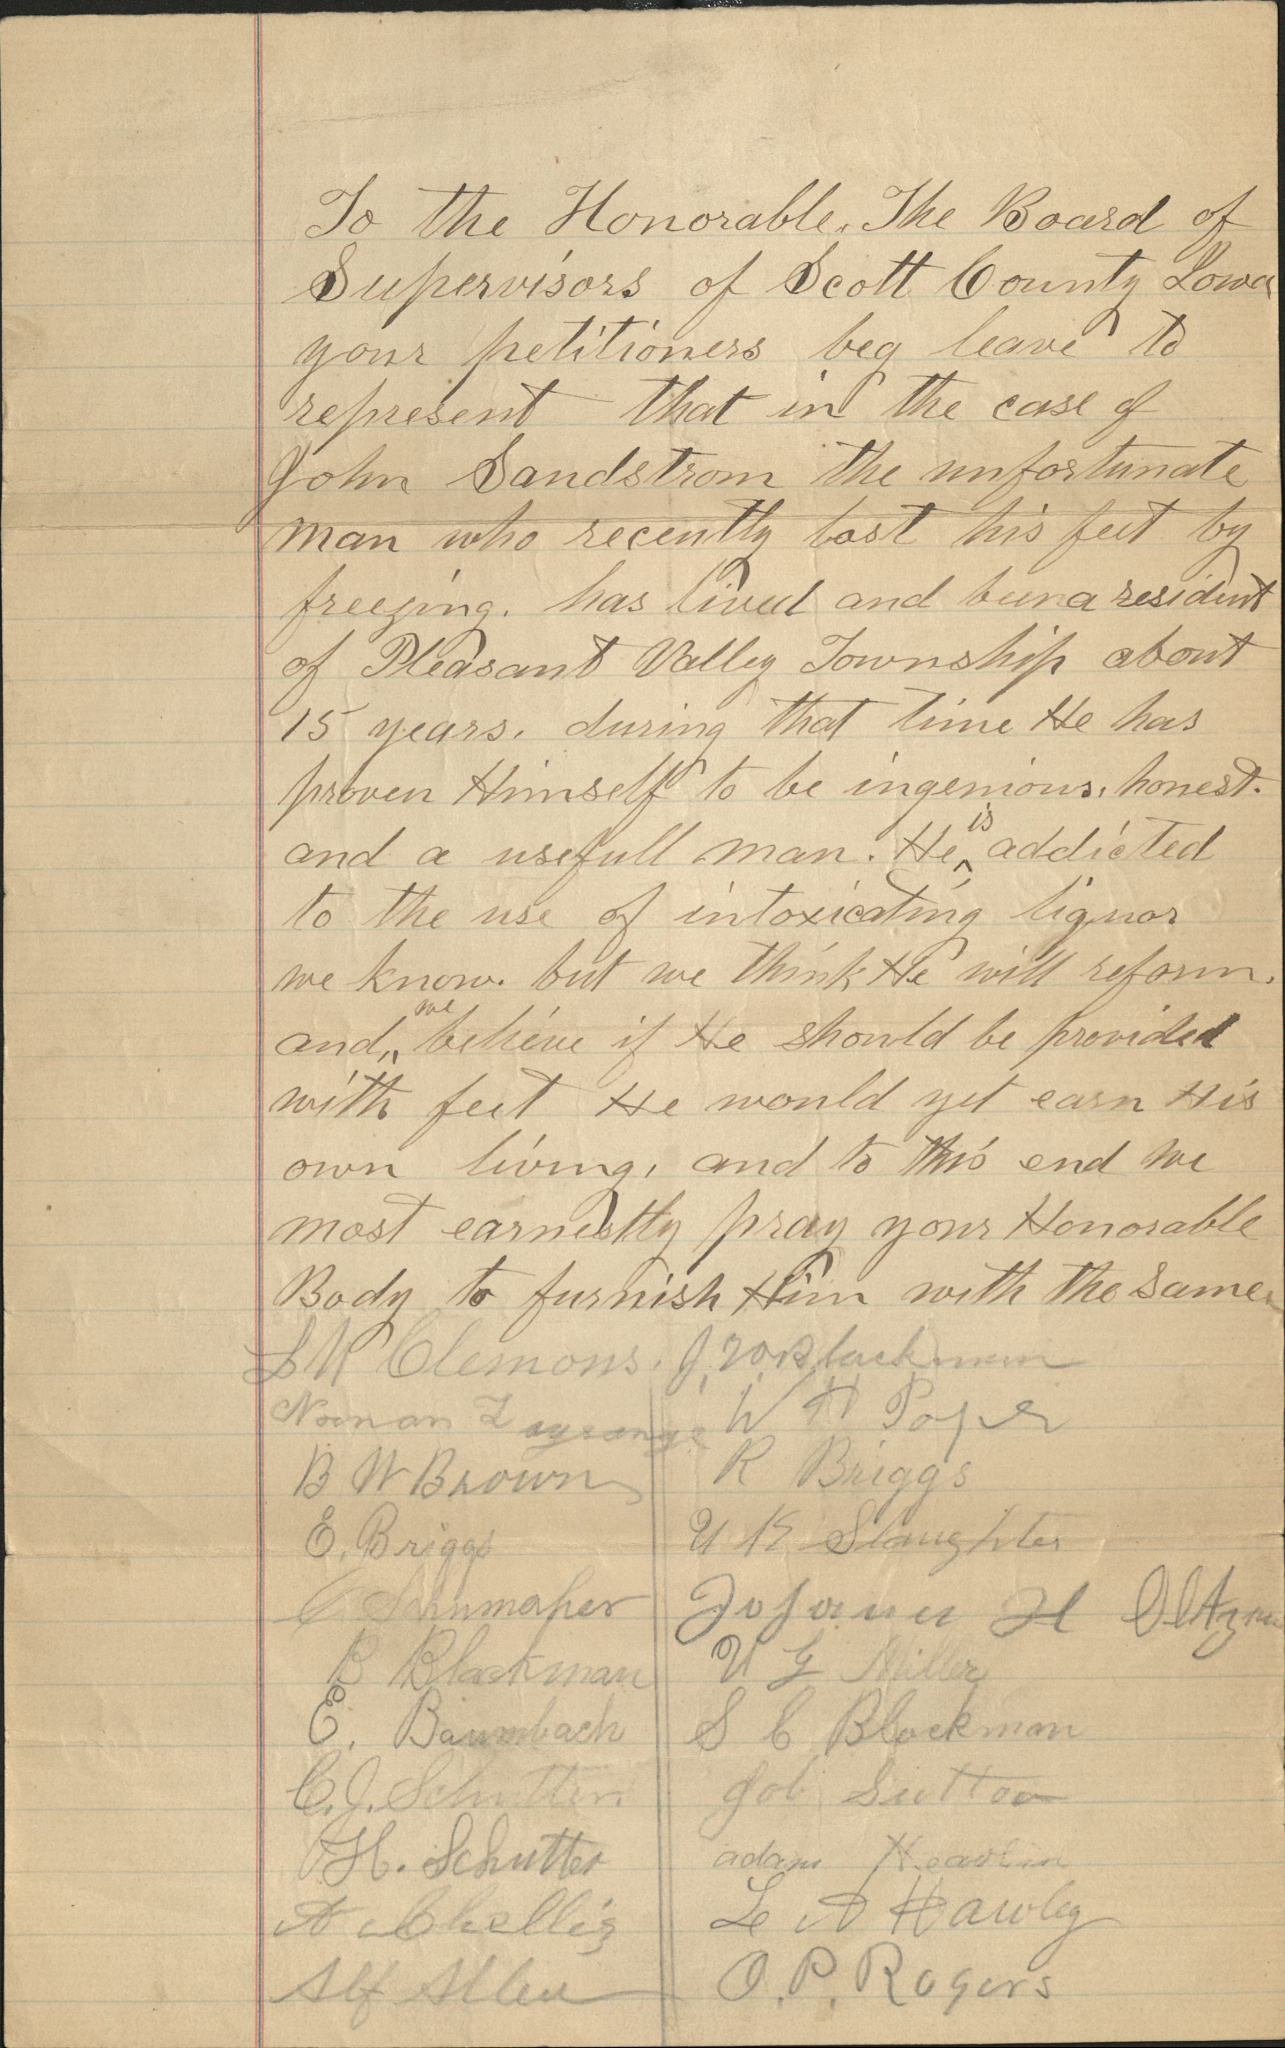 To the Honorable. The Board of
Supervisors of Scott County Iowa
your petitioners beg leave to
represent that in the case of
John Sandstrom the unfortunate
man who recently lost his feet by
freezing. has lived and been a resident
of Pleasant Valley Township about
15 years. during that time He has
proven Himself to be ingenious, honest.
and a usefull man. He is addicted
to the use of intoxicating liquor
we know. but we think He will reform.
and, we believe if He should be provided
with feet He would yet earn His
own living, and to this end we
most earnestly pray your Honorable
Body to furnish Him with the same
Clemons. Blackman
Norman W H
B W Brown R Briggs
E. Briggs U Slaughter
H
B Blackman U G Miller
E. Baumbach S C Blackman
C. J. Schutter Job Sutton
H. Schutter adam
A L A Hawley
Alf Allen O. P. Rogers